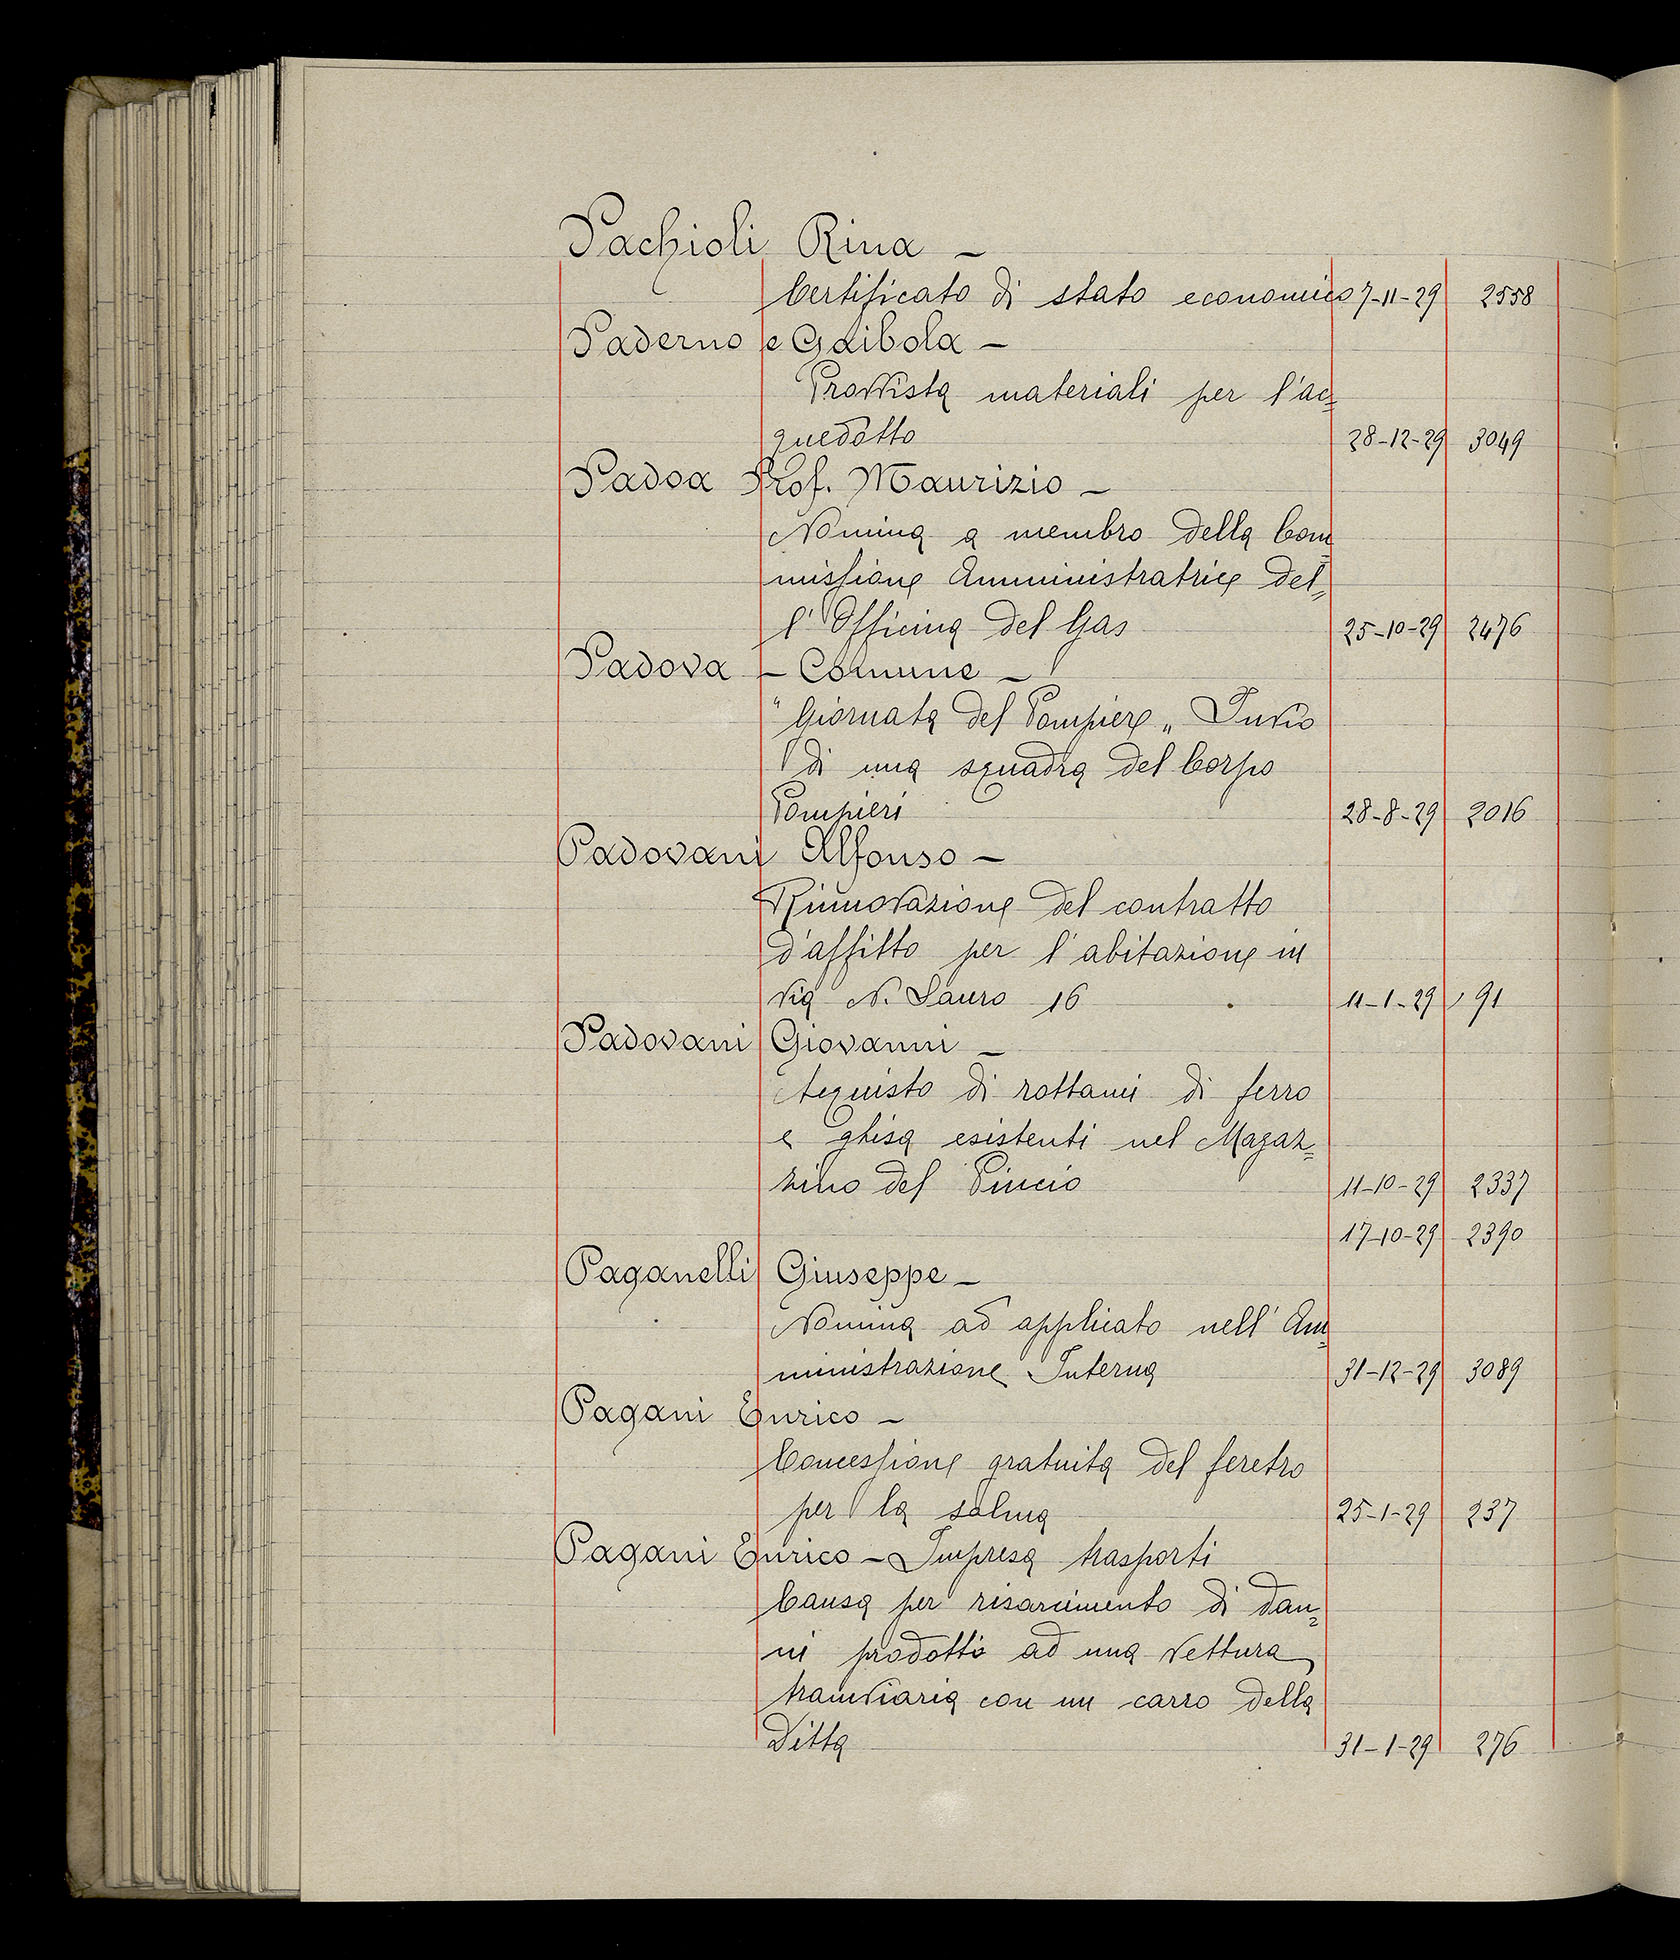 Pachioli Rina -
Certificato di stato economico 7-11-29 2558
Paderno e Gaibola -
Provvista materiali per l'ac=
quedotto 28-12-29 3049
Padoa Prof. Maurizio -
Nomina a membro della Com=
missione Amministratrice del=
l'Officina del Gas 25-10-29 2476
Padova - Comune -
"Giornata del Pompiere" Invio
di una squadra del Corpo
Pompieri 28-8-29 2016
Padovani Alfonso -
Rinnovazione del contratto
d'affitto per l'abitazione in
via N. Sauro 16 11-1-29 91
Padovani Giovanni -
Acquisto di rottami di ferro
e ghisa esistenti nel Magaz=
zino del Pincio 11-10-29 2337
17-10-29 2390
Paganelli Giuseppe -
Nomina ad applicato nell'Am=
ministrazione Interna 31-12-29 3089
Pagani Enrico -
Concessione gratuita del feretro
per la salma 25-1-29 237
Pagani Enrico - Impresa trasporti
Causa per risarcimento di dan=
ni prodotti ad una vettura
tramviaria con un carro della
Ditta 31-1-29 276